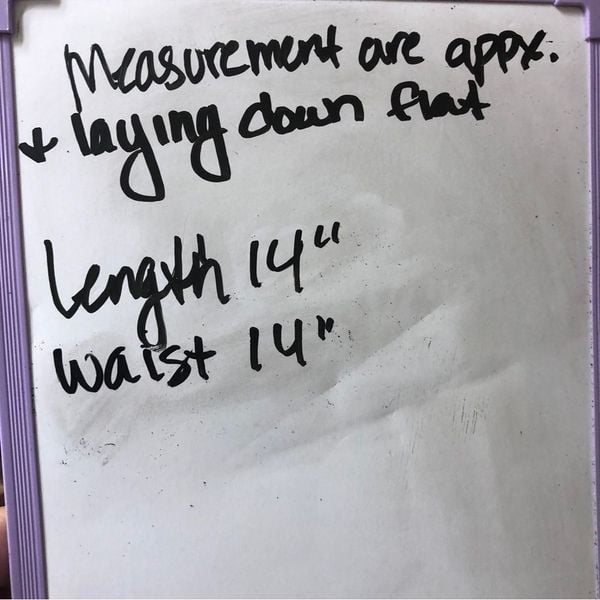 Measurement are appx.
+ laying down flat
Length 14"
waist 14"